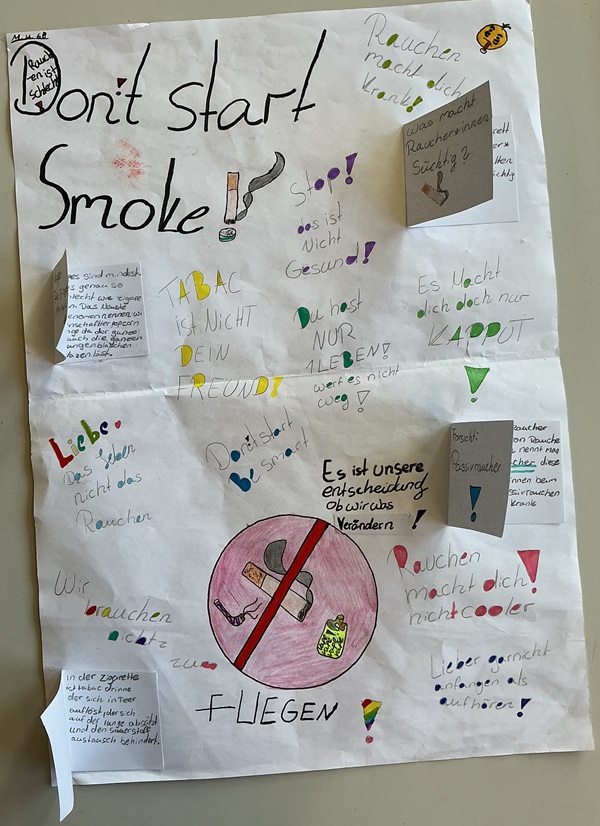 M.H. 6B
Rauch
en ist
schlecht
Don't start
Smoke!
Rauchen
macht dich
Krank!
Was macht
Raucher*innen
Süchtig?
Stop!
das ist
Nicht
Gesund!
es sind mindest
s genau so
TABAC
ist NICHT
DEIN
FREUND!
Du hast
NUR
1 LEBEN!
werf es nicht
weg!
Es Macht
dich doch nur
KAPPUT
!
Liebe
Das Leben
nicht das
Rauchen
Don't start
Be smart
Es ist unsere
entscheidung
ob wir was
Verändern!
Forsicht:
Passivraucher
!
aucher
on Rauche
nennt man
scher diese
nnen beim
ssivrauchen
krank
Rauchen
macht dich!
nicht cooler
Wir
brauchen
nichtz
zum
FLIEGEN!
Lieber garnicht
anfangen als
aufhören!
in der Zigarette
ist tabac drinne
der sich in Teer
auflöst, der sich
auf der lunge absetzt
und den sauerstoff
austausch behindert.